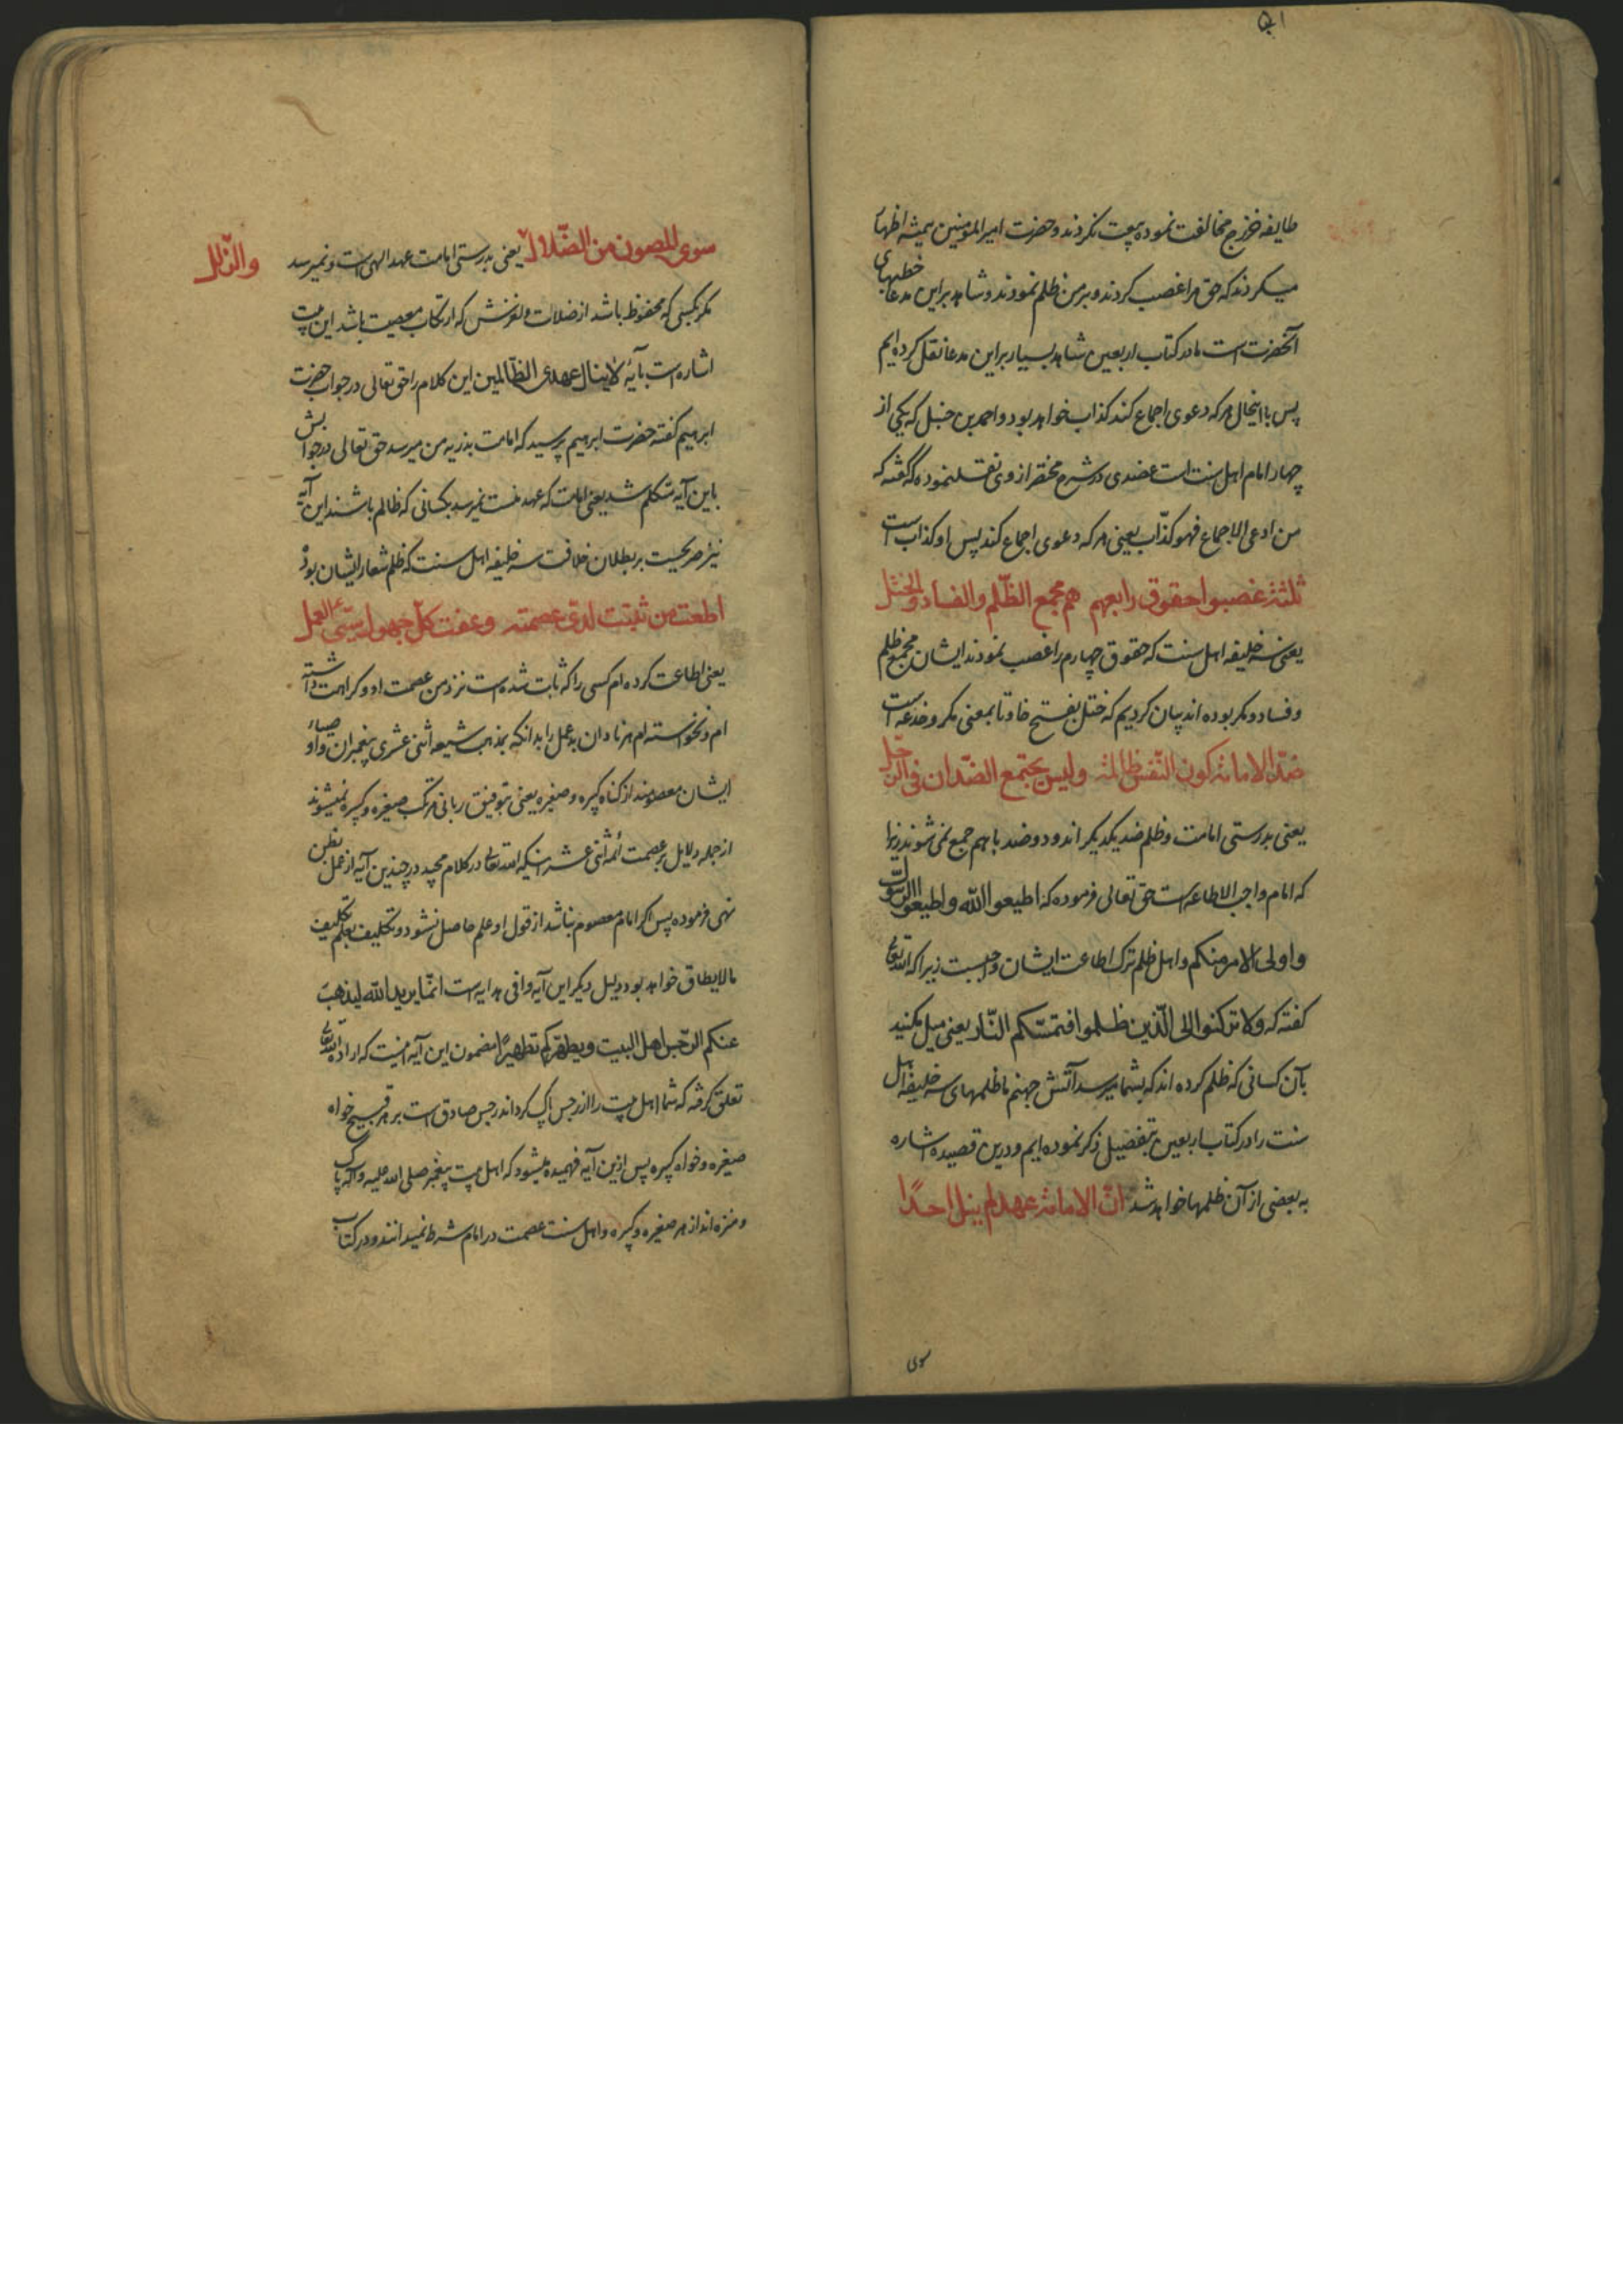 طایفه خزرج مخالفت نموده بیعت نکردند و حضرت امیرالمؤمنین همیشه اظهار
میکردند که حق مرا غصب کردند و بر من ظلم نمودند و شاهد براین مدعا خطبهای
آنحضرت است مادر کتاب اربعین شاهد بسیار براین مدعا نقل کرده ایم
پس با اینحال هر که دعوی اجماع کند کذاب خواهد بود و احمد بن حنبل که یکی از
چهار امام اهل سنت است عضدی در شرح مختصر از وی نقل نموده که گفته که
من ادعی الاجماع فهو کذّاب یعنی هر که دعوی اجماع کند پس او کذاب است
ثلثة غصبوا حقوق رابعهم هم مجمع الظّلم والفساد والختل
یعنی سه خلیفه اهل سنت که حقوق چهارم را غصب نمودند ایشان مجمع ظلم
و فساد و مکر بوده اند بیان کردیم که ختل بفتح خا و تا بمعنی مکر و خدعه است
ضدّ الامامة کون النّفس ظالمة ولیس یجتمع الضّدان فی الرّجل
یعنی بدرستی امامت و ظلم ضد یکدیکر اند و دو ضد باهم جمع نمی شوند زیرا
که امام واجب الاطاعه است حق تعالی فرموده که اطیعوا الله واطیعوا الرّسول
واولی الامر منکم و اهل ظلم ترک اطاعت ایشان واجبست زیرا که الله تعالی
کفته که ولا ترکنوا الی الّذین ظلموا فتمسّکم النّار یعنی میل مکنید
بآن کسانی که ظلم کرده اند که بشما میرسد آتش جهنم ما ظلمهای سه خلیفه اهل
سنت را در کتاب اربعین بتفصیل ذکر نموده ایم و درین قصیده اشاره
به بعضی از آن ظلمها خواهد شد انّ الامامة عهد لم ینل احدًا
سوی
سوی المصون من الضّلال والزّلل یعنی بدرستی امامت عهد الهی است و نمیرسد
مکر بکسی که محفوظ باشد از ضلالت و لغزش که ارتکاب معصیت باشد این بیت
اشاره است بآیهٔ لا ینال عهدی الظّالمین این کلام را حق تعالی در جواب حضرت
ابرهیم کفته حضرت ابرهیم پرسید که امامت بذریه من میرسد حق تعالی در جوابش
باین آیه متکلم شد یعنی امامت که عهد منست نمیرسد بکسانی که ظالم باشند این آیه
نیز صریحست بر بطلان خلافت سه خلیفه اهل سنت که ظلم شعار ایشان بود
اطعت من ثبتت لدیّ عصمته وعفت کلّ جهول سیّئ العمل
یعنی اطاعت کرده ام کسی را که ثابت شده است نزد من عصمت او و کراهت داشته
ام و نخواسته ام هر نادان بد عمل را بدانکه بمذهب شیعه اثنی عشری پیغمبران و اوصیاء
ایشان معصومند از کناه کبیره و صغیره یعنی بتوفیق ربانی مرتکب صغیره و کبیره نمیشوند
از جمله دلایل بر عصمت ائمه اثنی عشر اینکه الله تعالی در کلام مجید در چندین آیه از عمل بظن
نهی فرموده پس اکر امام معصوم نباشد از قول او علم حاصل نشود و تکلیف بعلم تکلیف
مالایطاق خواهد بود دلیل دیکر این آیه وافی هدایه است انّما یرید الله لیذهب
عنکم الرّجس اهل البیت ویطهّرکم تطهیرًا مضمون این آیه اینست که اراده الله تعالی
تعلق کرفته که شما اهل بیت را از رجس پاک کرداند رجس صادق است بر هر قبیح خواه
صغیره و خواه کبیره پس ازین آیه فهمیده میشود که اهل بیت پیغمبر صلی الله علیه و آله پاک
و منزه اند از هر صغیره و کبیره و اهل سنت عصمت در امام شرط نمیدانند و در کتاب